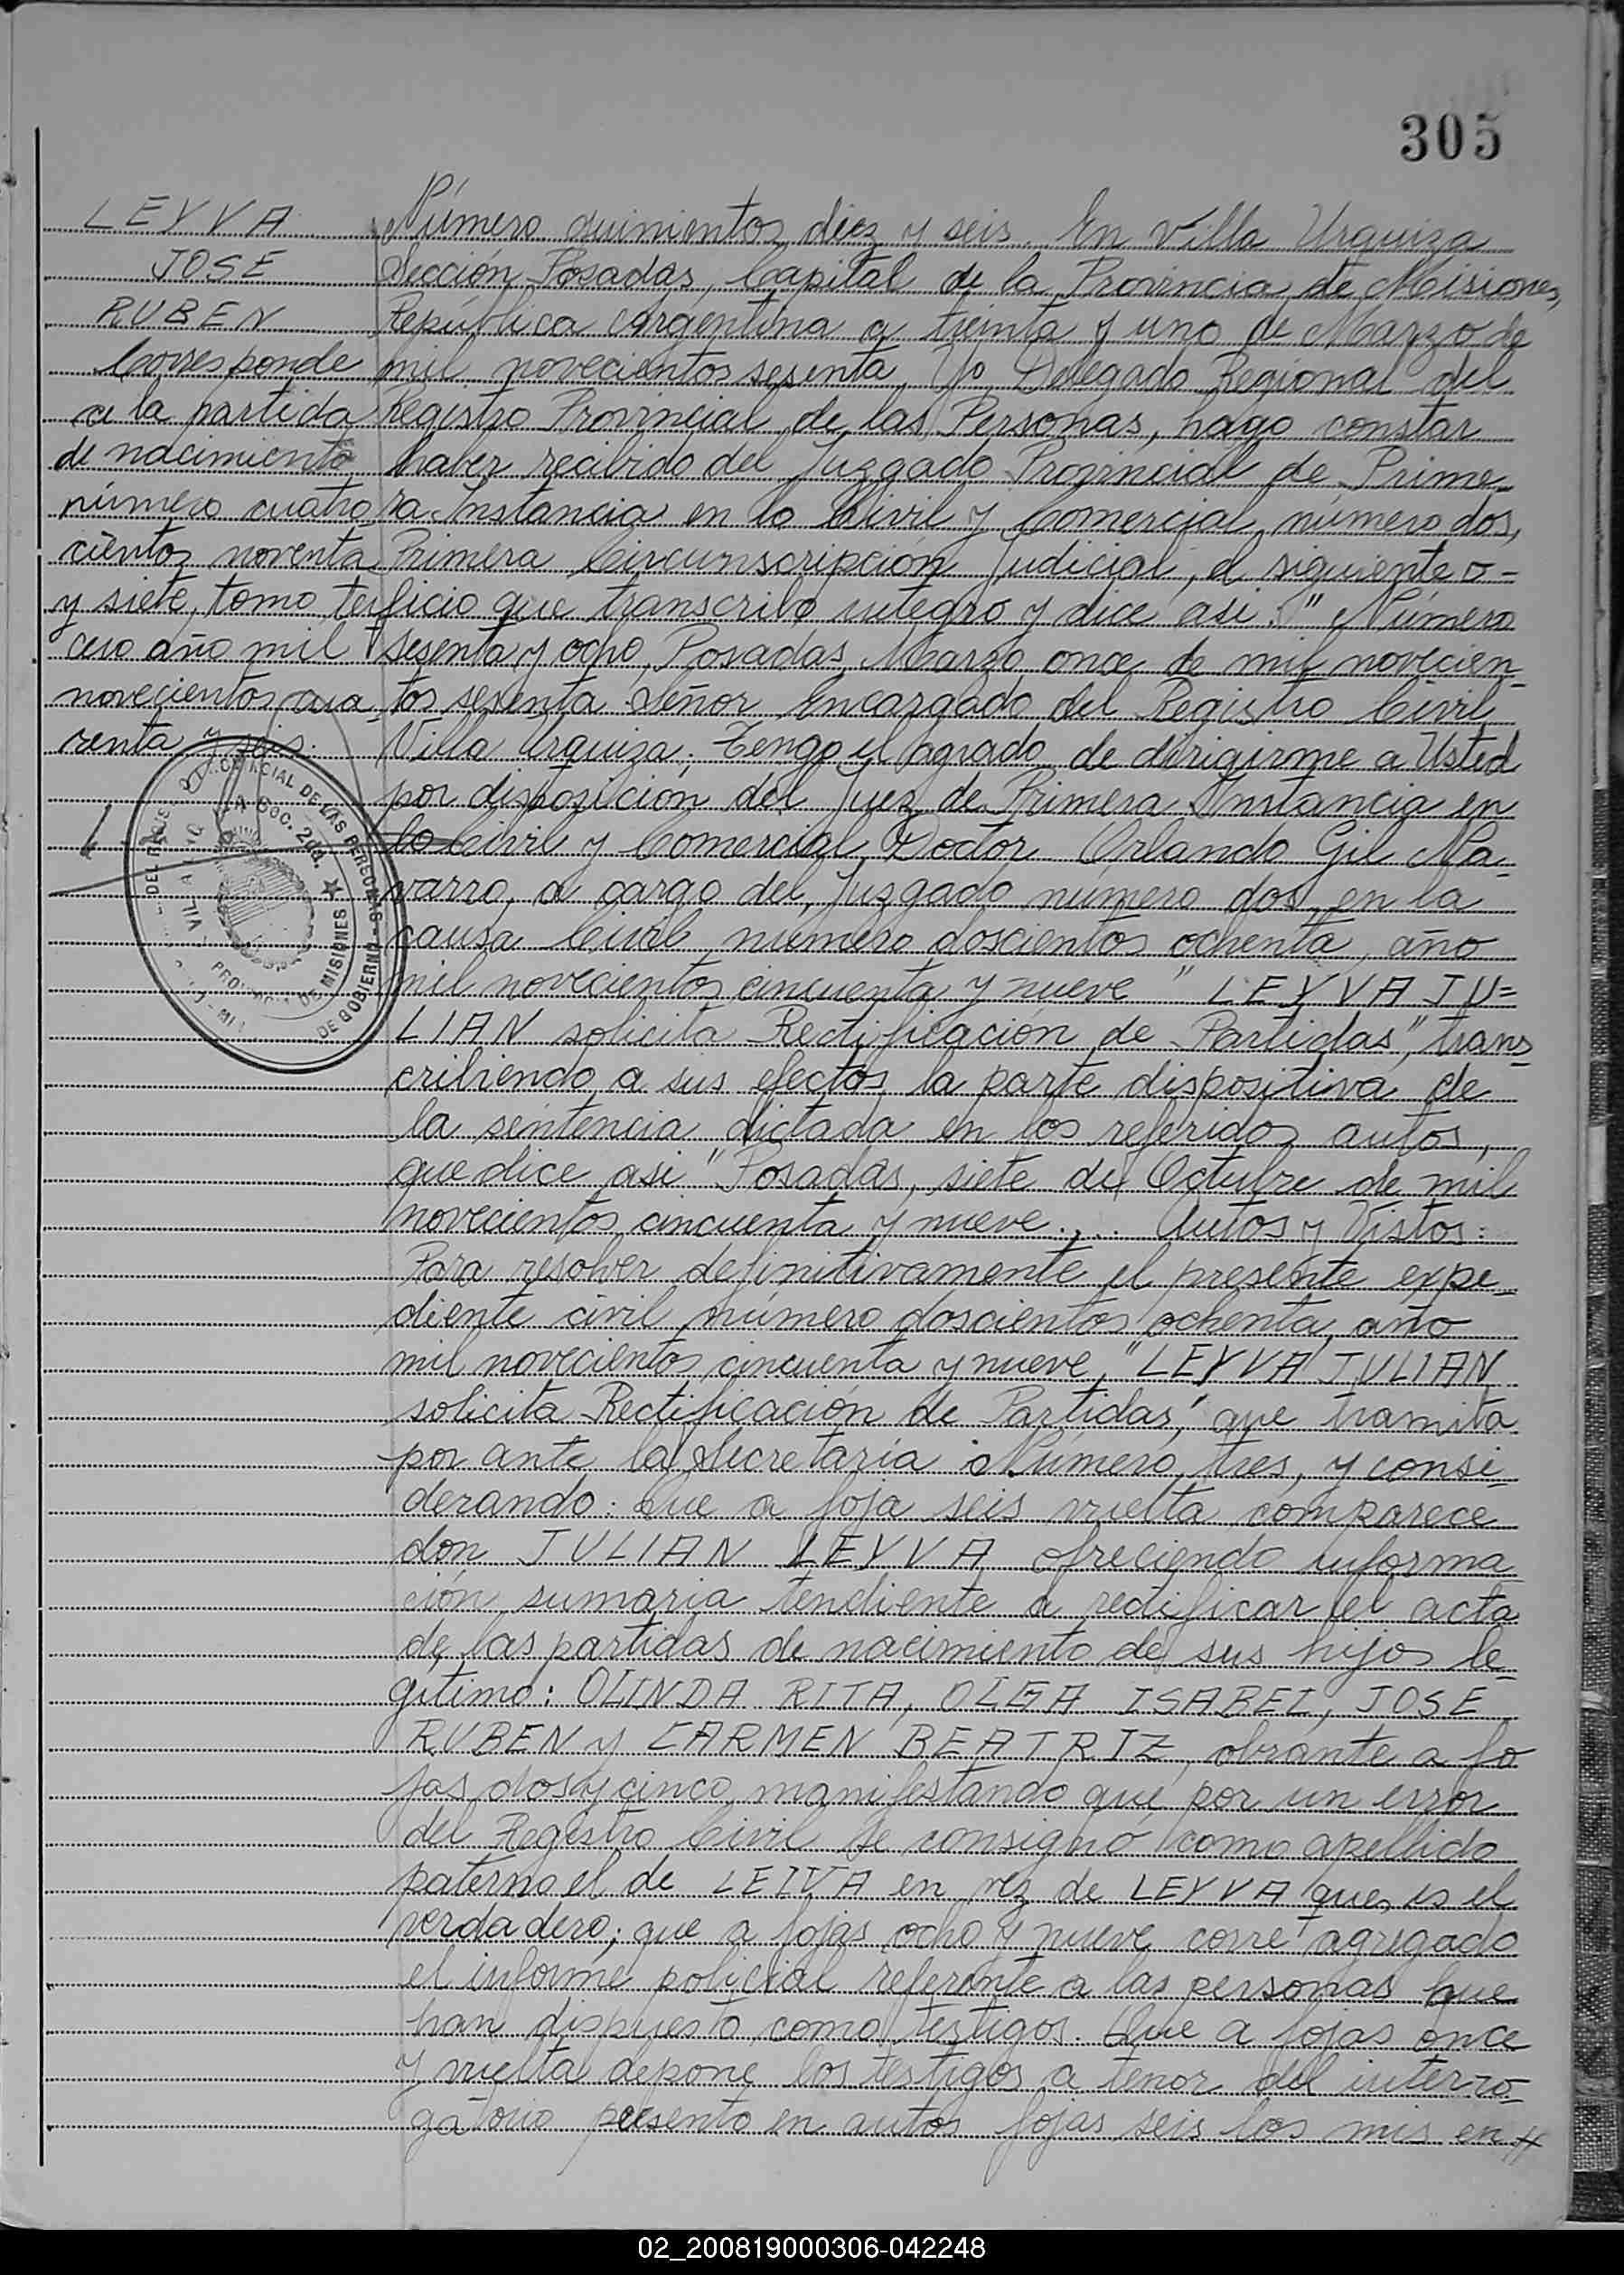 305
LEYVA
JOSE
RUBEN
Corresponde
a la partida
de nacimiento
número cuatro
cientos noventa
y siete, tomo ter
cero año mil
novecientos cua
renta y seis.
Número quinientos diez y seis. En Villa Urquiza
Sección Posadas, Capital de la Provincia de Misiones,
República Argentina a treinta y uno de Marzo de
mil novecientos sesenta, Yo Delegado Regional del
Registro Provincial de las Personas, hago constar
haber recibido del Juzgado Provincial de Prime-
ra Instancia en lo Civil y Comercial, número dos,
Primera Circunscripción Judicial, el siguiente o-
ficio que transcribo integro y dice asi: " Número
sesenta y ocho, Posadas, Marzo once de mil novecien-
tos sesenta. Señor Encargado del Registro Civil
Villa Urquiza; Tengo el agrado de dirigirme a Usted
por disposición del Juez de Primera Instancia en
lo Civil y Comercial, Doctor Orlando Gil Na-
varro, a cargo del Juzgado número dos, en la
causa Civil número doscientos ochenta, año
mil novecientos cincuenta y nueve " LEYVA JU=
LIAN solicita Rectificación de Partidas", trans-
cribiendo a sus efectos la parte dispositiva de
la sentencia dictada en los referidos autos,
que dice asi "Posadas, siete de Octubre de mil
novecientos cincuenta y nueve... Autos y Vistos:
Para resolver definitivamente el presente expe-
diente civil número doscientos ochenta, año
mil novecientos cincuenta y nueve, "LEYVA JULIAN
solicita Rectificación de Partidas", que tramita
por ante la Secretaria Número, tres, y consi-
derando: Que a foja seis vuelta comparece
don JULIAN LEYVA ofreciendo informa
ción sumaria tendiente a rectificar el acta
de las partidas de nacimiento de sus hijos le-
gitimo: OLINDA RITA, OLGA ISABEL, JOSE
RUBEN y CARMEN BEATRIZ, obrante a fo
jas dos y cinco, manifestando que por un error
del Registro Civil se consignó como apellido
paterno el de LEIVA en vez de LEYVA que es el
verdadero; que a fojas ocho y nueve corre agregado
el informe policial referente a las personas que
han dispuesto como testigos. Que a fojas once
y vuelta depone los testigos a tenor del interro-
gatorio presento en autos fojas seis los mis en #
DEL PROVINCIAL DE LAS PERSONAS - DE GOBIERNO
VILLA
Secc. 2da.
PROVINCIA DE MISIONES
02_200819000306-042248